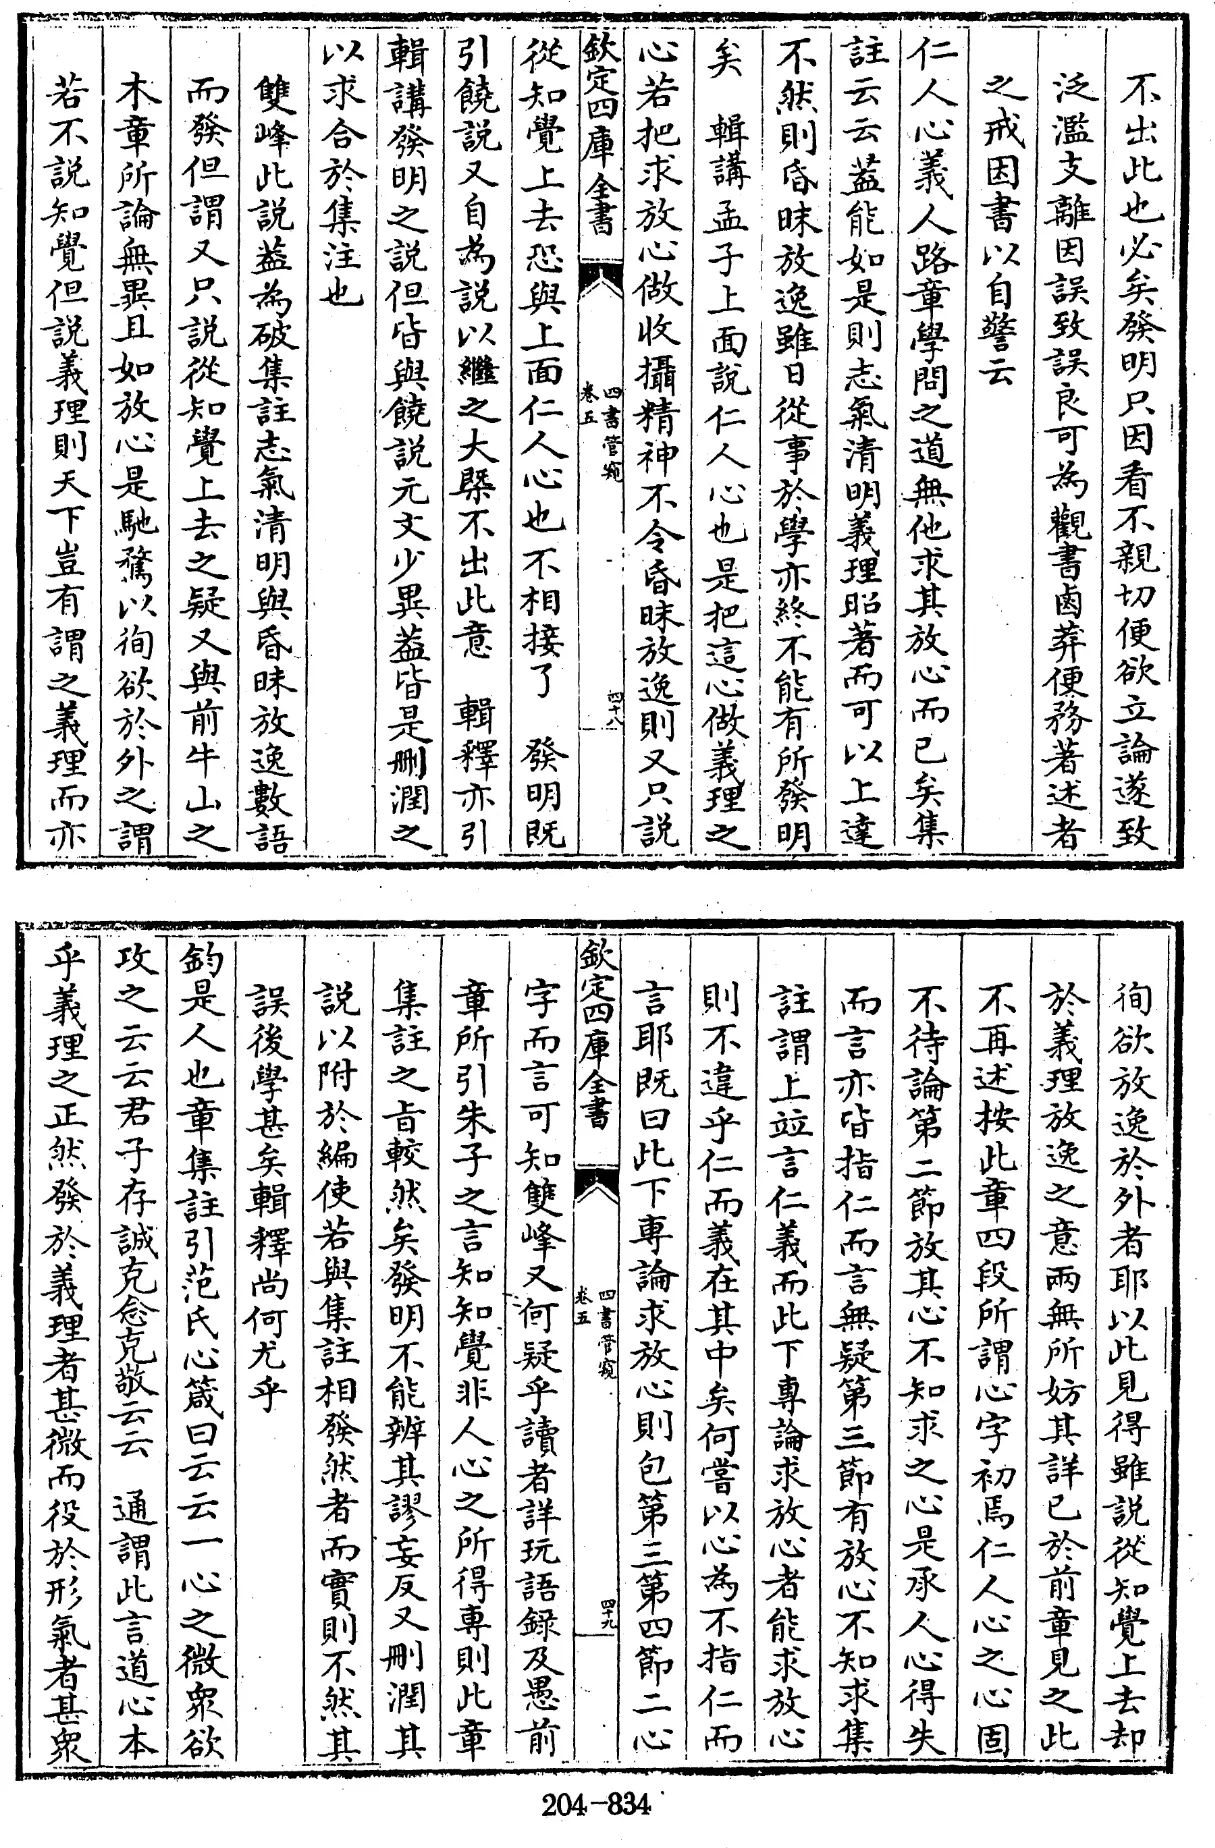 不出此也必矣發明只因看不親切便欲立論遂致
泛濫支離因誤致誤良可為觀書鹵莽便務著述者
之戒因書以自警云
仁人心義人路章學問之道無他求其放心而已矣集
註云云葢能如是則志氣清明義理昭著而可以上達
不然則昏昧放逸雖日從事於學亦終不能有所發明
矣 輯講孟子上面說仁人心也是把這心做義理之
心若把求放心做收攝精神不令昏昧放逸則又只說
欽定四庫全書 四書管窺 卷五 四十八
從知覺上去恐與上面仁人心也不相接了 發明既
引饒說又自為說以繼之大槩不出此意 輯釋亦引
輯講發明之說但皆與饒說元文少異葢皆是刪潤之
以求合於集注也
雙峰此說葢為破集註志氣清明與昏昧放逸數語
而發但謂又只說從知覺上去之疑又與前牛山之
木章所論無異且如放心是馳騖以徇欲於外之謂
若不說知覺但說義理則天下豈有謂之義理而亦
徇欲放逸於外者耶以此見得雖說從知覺上去却
於義理放逸之意兩無所妨其詳已於前章見之此
不再述按此章四段所謂心字初焉仁人心之心固
不待論第二節放其心不知求之心是承人心得失
而言亦皆指仁而言無疑第三節有放心不知求集
註謂上竝言仁義而此下專論求放心者能求放心
則不違乎仁而義在其中矣何嘗以心為不指仁而
言耶既曰此下專論求放心則包第三第四節二心
欽定四庫全書 四書管窺 卷五 四十九
字而言可知雙峰又何疑乎讀者詳玩語錄及愚前
章所引朱子之言知知覺非人心之所得專則此章
集註之旨較然矣發明不能辨其謬妄反又刪潤其
說以附於編使若與集註相發然者而實則不然其
誤後學甚矣輯釋尚何尤乎
鈞是人也章集註引范氏心箴曰云云一心之微衆欲
攻之云云君子存誠克念克敬云云 通謂此言道心本
乎義理之正然發於義理者甚微而役於形氣者甚衆
204-834